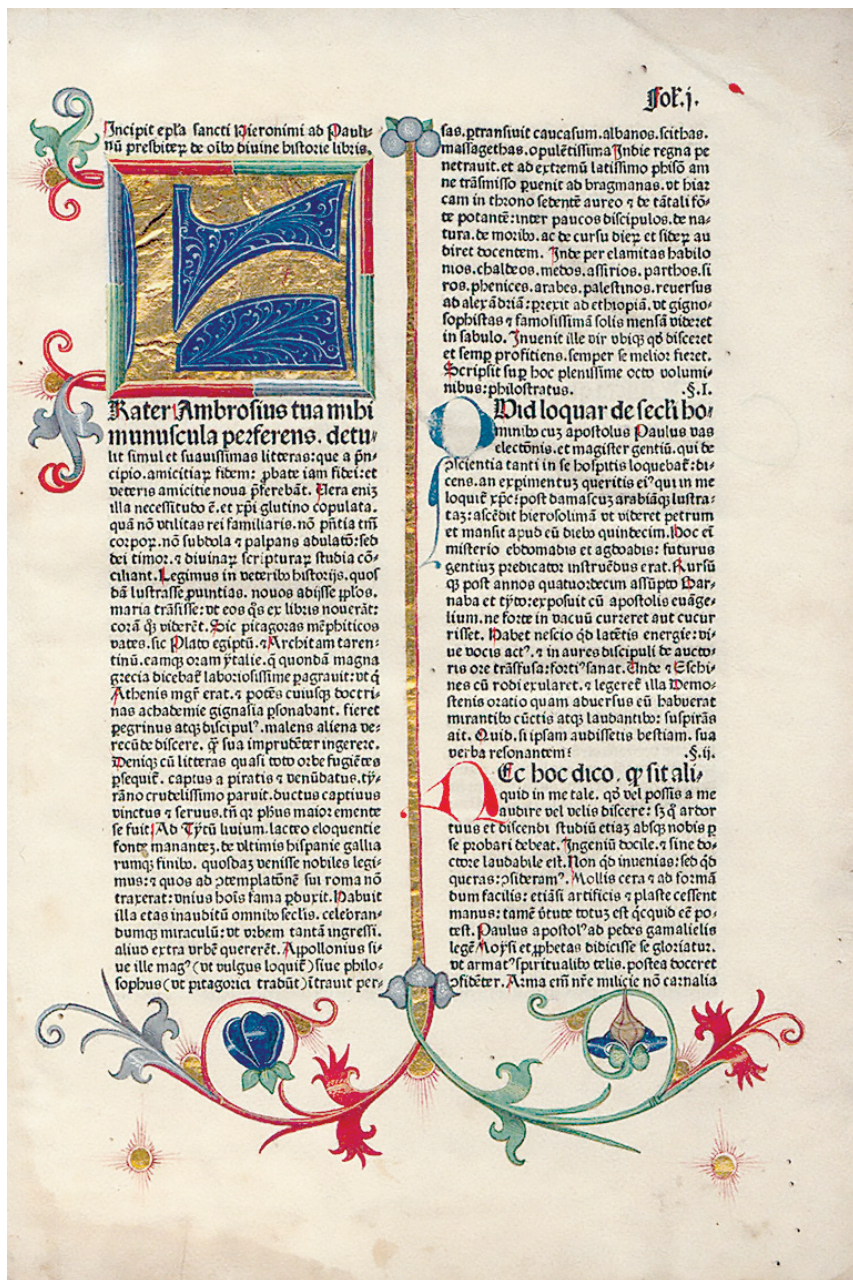 Fol. j.
Incipit epl̃a sancti Hieronimi ad Pauli-
nũ presbiteꝝ de oĩbꝰ divine historie libris.
Frater Ambrosius tua mihi
munuscula perferens. detu-
lit simul et suavissimas litteras: que a pñ-
cipio. amicitiaꝝ fidem: ꝓbate iam fidei: et
veteris amicitie nova p̃ferebãt. Vera eniz
illa necessitudo ẽ. et xp̃i glutino copulata.
quã nõ vtilitas rei familiaris. nõ pñtia tm̃
corpoꝝ. nõ subdola ⁊ palpans adulatõ: sed
dei timor. ⁊ divinaꝝ scripturaꝝ studia cõ-
ciliant. Legimus in veteribꝰ historijs. quos
dã lustrasse ꝓvintias. novos adijsse pp̃los.
maria trãsisse: vt eos q̃s ex libris noverãt:
corã q̃ꝫ viderẽt. Sic pitagoras mẽphiticos
vates. sic Plato egiptũ. ⁊ Architam taren-
tinũ. eamqꝫ oram ytalie. q̃ quondã magna
grecia dicebat᷑ laboriosissime ꝑagravit: vt q̃
Athenis mgr̃ erat. ⁊ potẽs cuiusqꝫ doctri-
nas achademie gignasia ꝑsonabant. fieret
ꝑegrinus atqꝫ discipulꝰ. malens aliena ve-
recũde discere. q̃ sua impudẽter ingerere.
Deniqꝫ cũ litteras quasi toto orbe fugiẽtes
ꝑsequit᷑. captus a piratis ⁊ venũdatus. tÿ-
rãno crudelissimo paruit. ductus captivus
vinctus ⁊ servus. tñ qꝛ ph̃us maior emente
se fuit. Ad Tytũ livium. lacteo eloquentie
fonte manantez. de vltimis hispanie gallia
rumqꝫ finibꝰ. quosdaz venisse nobiles legi-
mus: ⁊ quos ad ꝯtemplatõnẽ sui roma nõ
traxerat: vnius hoĩs fama ꝑduxit. Habuit
illa etas inauditũ omnibꝰ seclis. celebran-
dumqꝫ miraculũ: vt vrbem tantã ingressi.
aliud extra vrbẽ quererẽt. Appollonius si-
ve ille magꝰ (vt vulgus loquit᷑) sive philo-
sophus (vt pitagorici tradũt) ĩtravit per-
sas. ꝑtransivit caucasum. albanos. scithas.
massagethas. opulẽtissima Jndie regna pe
netravit. et ad extremũ latissimo phisõ am
ne trãsmisso ꝑvenit ad bragmanas. vt hiar
cam in throno sedentẽ aureo ⁊ de tãtali fõ-
te potantẽ: inter paucos discipulos. de na-
tura. de moribꝰ. ac de cursu dieꝝ et sideꝝ au
diret docentem. Jnde per elamitas babilo
nios. chaldeos. medos. assirios. parthos. si
ros. phenices. arabes. palestinos. reversus
ad alexãdriã: ꝑrexit ad ethiopiã. vt gigno-
sophistas ⁊ famosissimã solis mensã videret
in sabulo. Jnvenit ille vir vbiqꝫ qd̃ disceret
et semꝑ profitiens. semper se melior fieret.
Scripsit suꝑ hoc plenissime octo volumi-
nibus: philostratus. .§.I.
Quid loquar de secli ho-
minibꝰ cuz apostolus Paulus vas
electõnis. et magister gentiũ. qui de
ꝯscientia tanti in se hospitis loquebat᷑: di-
cens. an exꝑimentuz queritis eiꝰ qui in me
loquit᷑ xp̃c: post damascuz arabiãqꝫ lustra-
taz: ascẽdit hierosolimã vt videret petrum
et mansit apud eũ diebꝰ quindecim. Hoc em̃
misterio ebdomadis et agdoadis: futurus
gentiuz predicator instruẽdus erat. Rursũ
qꝫ post annos quatuordecim assũpto Bar-
naba et tÿto: exposuit cũ apostolis euãge-
lium. ne forte in vacuũ curreret aut cucur
risset. Habet nescio qd̃ latẽtis energie: vi-
ve vocis actꝰ. ⁊ in aures discipuli de aucto-
ris ore trãsfusa: fortiꝰ sanat. Unde ⁊ Eschi-
nes cũ rodi exularet. ⁊ legeret᷑ illa Demo-
stenis oratio quam adversus eũ habuerat
mirantibꝰ cũctis atqꝫ laudantibꝰ: suspirãs
ait. Quid. si ipsam audissetis bestiam. sua
verba resonantem? .§.ij.
Nec hoc dico. qꝙ sit ali-
quid in me tale. qd̃ vel possis a me
audire vel velis discere: sꝫ q̃ ardor
tuus et discendi studiũ etiaz absqꝫ nobis ꝑ
se probari debeat. Jngeniũ docile. ⁊ sine do-
ctore laudabile est. Non qd̃ invenias: sed qd̃
queras: ꝯsideramꝰ. Mollis cera ⁊ ad formã
dum facilis: etiãsi artificis ⁊ plaste cessent
manus: tamẽ ṽtute totuz est q̃cquid eẽ po-
test. Paulus apostolꝰ ad pedes gamalielis
legẽ Moysi et ꝓphetas didicisse se gloriatur.
vt armatꝰ spiritualibꝰ telis. postea doceret
ꝯfidẽter. Arma em̃ nr̃e milicie nõ carnalia